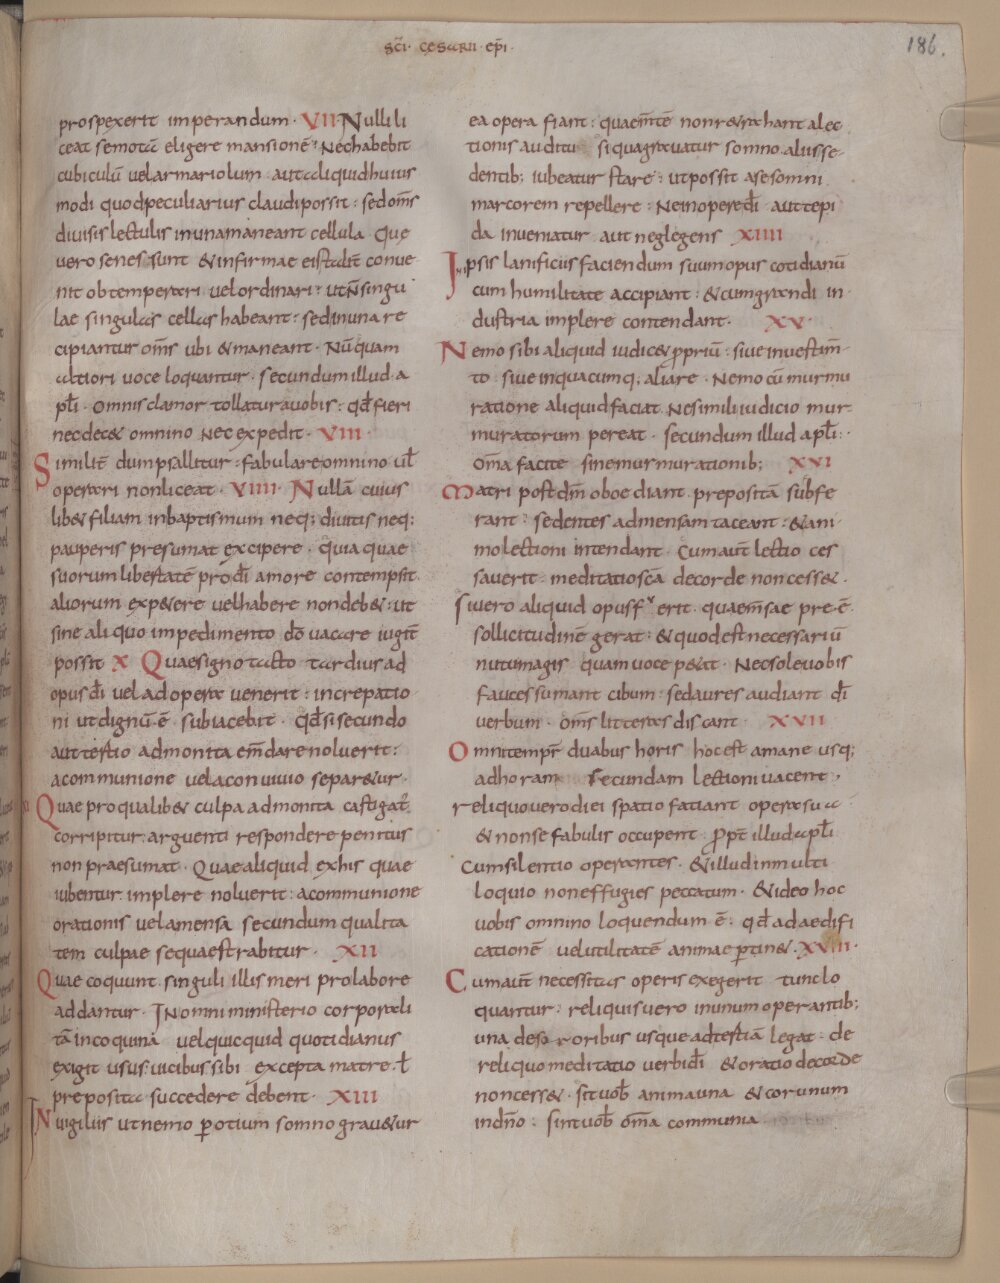 SCI· CESARII· EPI·
186.
prospexerit imperandum · VII Nulli li
ceat semotā eligere mansionē· Nec habebit
cubiculū vel armariolum aut aliquid huius
modi quod peculiarius claudi possit: sed om̄s
diuisis lectulis in una maneant cellula Que
uero senes sunt & infirmae
nit obtemperari uel ordinari· ut ñ singu
lae singulas cellas habeant: sed in una re
cipiantur om̄s ubi & maneant · Nū quam
altiori uoce loquantur · secundum illud a
pl̄i · Omnis clamor tollatur a uobis: qđ fieri
nec dec& omnino nec expedit · VIII
Similit̄ dum psallitur: fabulare omnino ul̄
operari non liceat · VIIII · Nullā cuius
lib& filiam in baptismum neq; diuitis neq;
pauperis presumat excipere · quia quae
suorum libertatē pro dī amore contempsit
aliorum exp&ere uel habere non deb&: ut
sine aliquo impedimento dō uacare iugit̄
possit X Quae signo tacto tardius ad
opus dī uel ad opera uenerit: increpatio
ni ut dignū ē subiacebit · qđ si secundo
aut tertio admonita em̄dare noluerit:
a communione uel a conuiuio separ&ur·
XI Quae pro qualib& culpa admonita castigat̄
corripitur: arguenti respondere penitus
non praesumat · Quae aliquid ex his quae
iubentur implere noluerit: a communione
orationis uel a mensa secundum qualita
tem culpae sequaestrabitur · XII
Quae coquunt singuli illis meri pro labore
addantur · IN omni ministerio corporali
tā in coquina uel quicquid quotidianus
exigit usus: uicibus sibi excepta matre · ł
preposita succedere debent · XIII
IN uigiliis ut nemo p̄ otium somno grau&ur
ea opera fiant: quae m̄tē non r&rahant a lec
tionis auditu si qua grauatur somno aliis se-
dentib; iubeatur stare: ut possit a se somni
marcorem repellere: Ne in opere dī aut tepi
da inueniatur aut neglegens XIIII
In ipsis lanificiis faciendum suum opus cotidianū
cum humilitate accipiant: & cum grandi in
dustria implere contendant · XV
Nemo sibi aliquid iudic& p̄priū: siue in uestim̄
to siue in qua cumq; alia re · Nemo cū murmu
ratione aliquid faciat Ne simili iudicio mur
muratorum pereat · secundum illud apl̄i:·
Om̄a facite sine murmurationib; XVI
Matri post dm̄ oboediant prepositā sub̄fe
rant: sedentes ad mensam taceant: & ani
mo lectioni intendant · Cum aut̄ lectio ces
sauerit meditatio sc̄a de corde non cess& ·
Si uero aliquid opus fuerit · quae m̄sae preē
sollicitudinē gerat: & quod est necessariū
nutu magis quam uoce p&at · Nec sole uobis
fauces sumant cibum: sed aures audiant dī
uerbum · om̄s litteras discant · XVII
Omni tempr̄ duabus horis hoc est a mane usq;
ad horam secundam lectioni uacent,
reliquo uero diei spatio fatiant opera sua
& non se fabulis occupent p̄pt̄ illud apl̄i
Cum silentio operantes · & illud in multi
loquio non effugies peccatum · & ideo hoc
uobis omnino loquendum ē: qđ ad aedifi
cationē uel utilitatē animae p̄tin& · XVIII·
Cum aut̄ necessitas operis exegerit tunc lo
quantur: reliquis uero in unum operantib;
una de sororibus usque ad tertiā legat: de
reliquo meditatio uerbi dī & oratio de corde
non cess& · sit uob̄ anima una & cor unum
in dn̄o: sint uob̄ om̄a communia